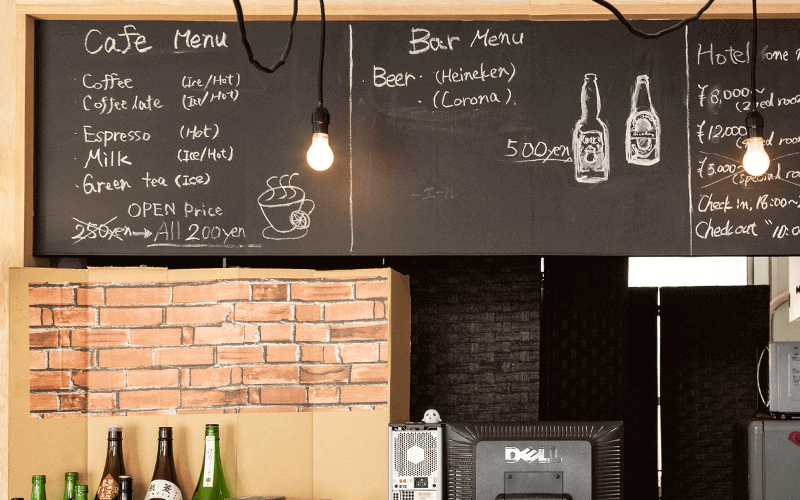 Cafe Menu
· Coffee (Ice/Hot)
· Coffee late (Ice/Hot)
· Espresso (Hot)
· Milk (Ice/Hot)
· Green tea (Ice)
OPEN Price
250yen→All 200yen
Bar Menu
· Beer · (Heineken)
· (Corona)
500yen
エール
Hotel (one
¥8,000~
(2bed room
¥12,000
¥5,000~
(special room
Check in, 16:00~
Check out "10:0
DELL